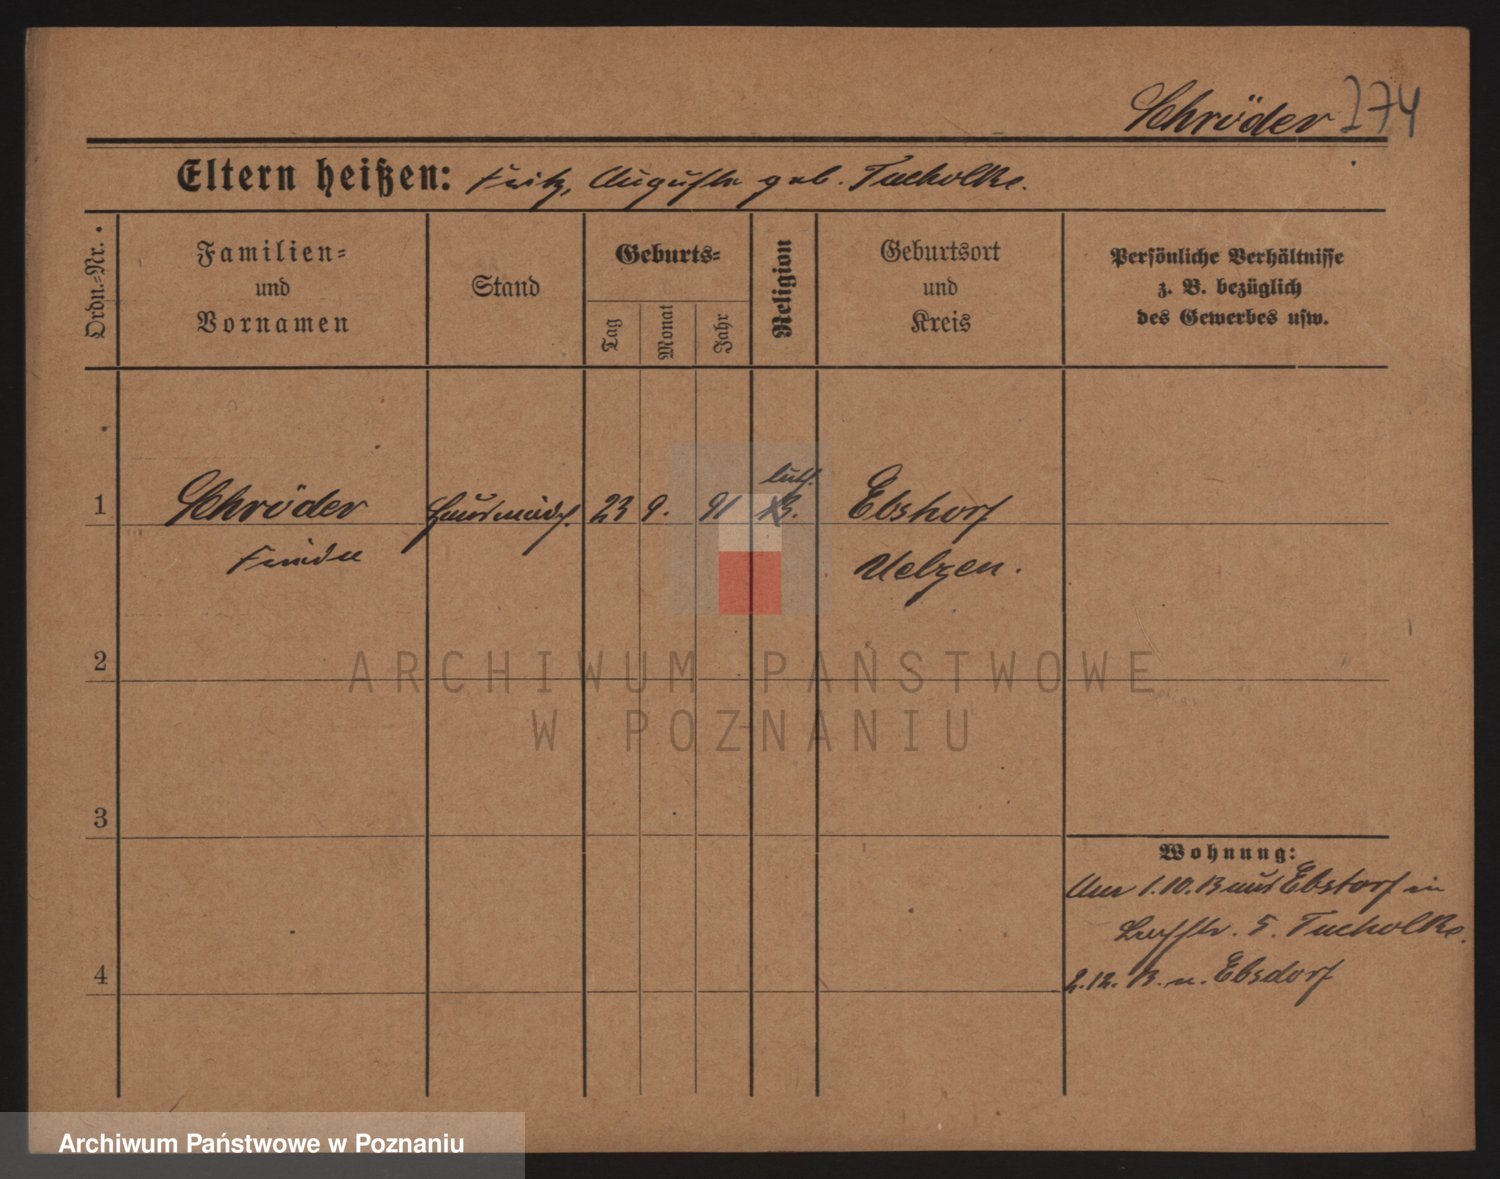 Schröder 274
Eltern heißen: Fritz, Auguste geb. Tucholke.
Ordn.-Nr.
Familien-
und
Vornamen
Stand
Geburts-
Tag
Monat
Jahr
Religion
Geburtsort
und
Kreis
Persönliche Verhältnisse
z. B. bezüglich
des Gewerbes usw.
1 Schröder 23 9. 91 luth. Ebshorf
Uelzen.
2
ARCHIWUM PAŃSTWOWE
W POZNANIU
3
Wohnung:
1.10.13 aus Ebstorf in
5. Tucholke.
4
2.12.13. n. Ebsdorf
Archiwum Państwowe w Poznaniu